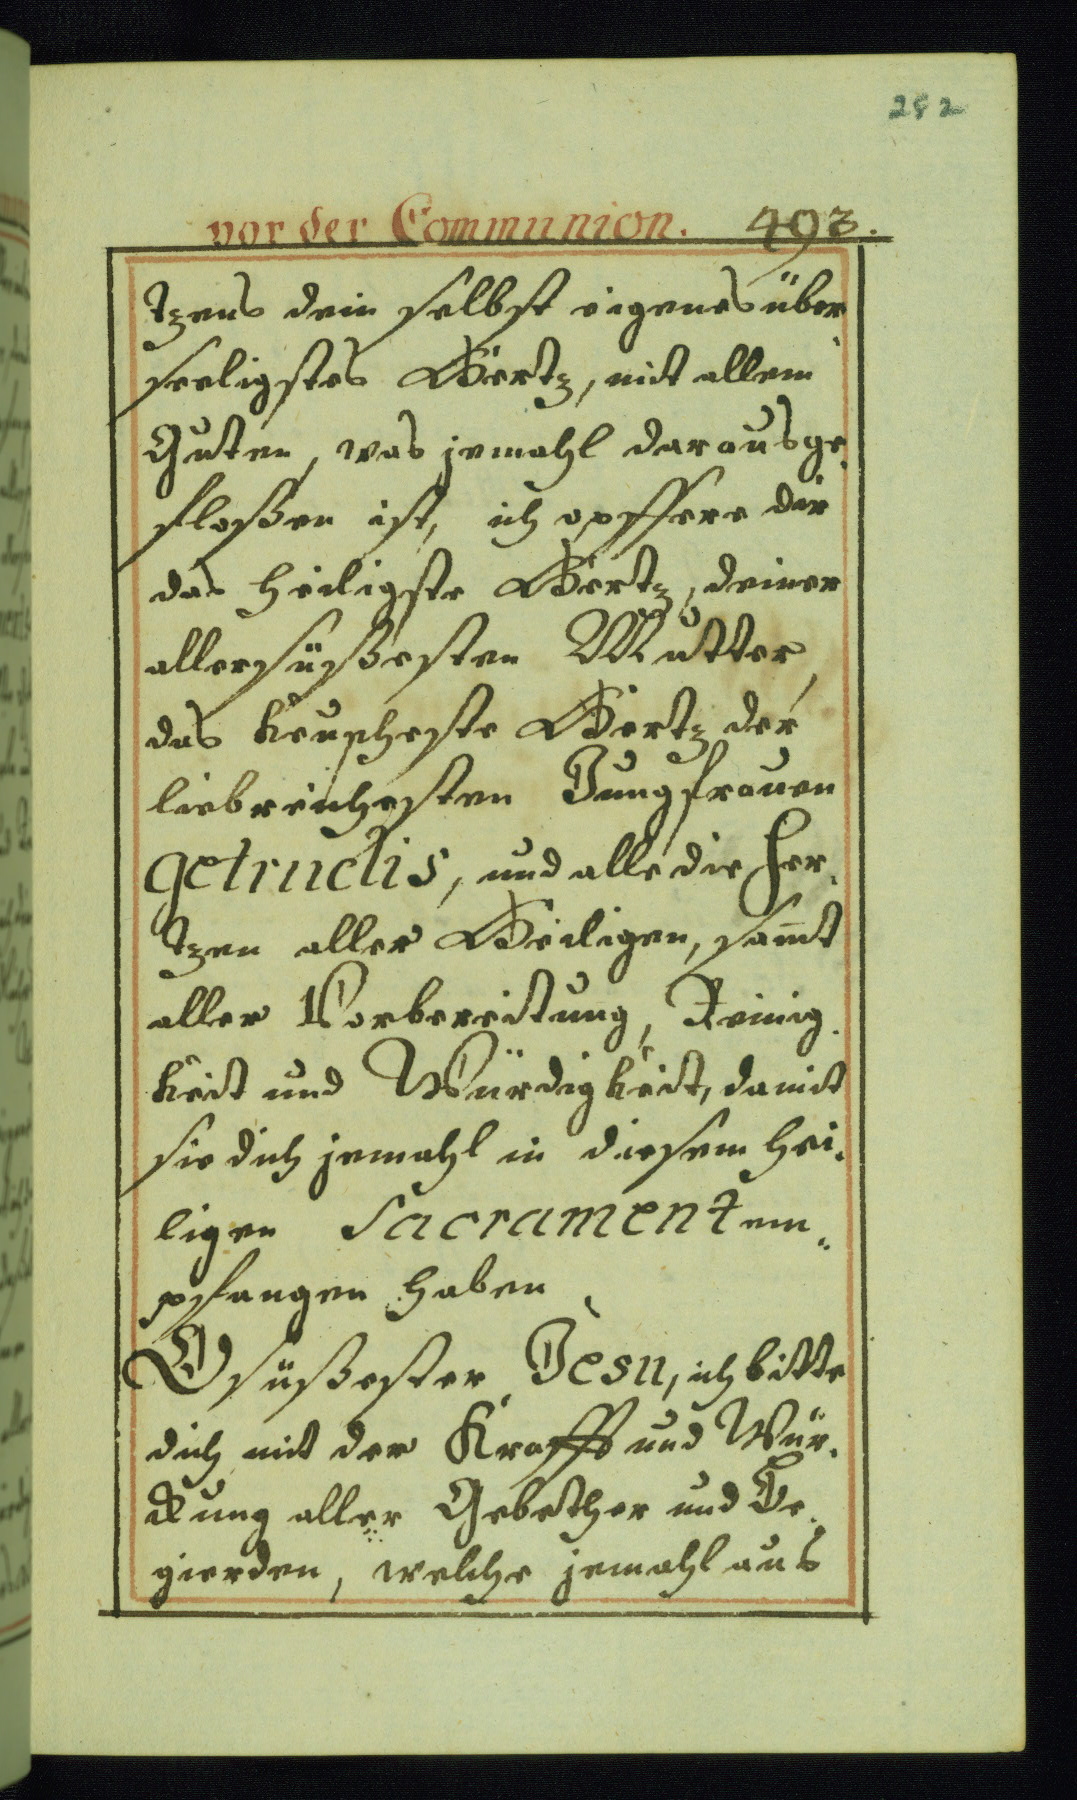 252
vor der Communion. 493.
tzens dein selbst eigenes über
seeligstes Hertz, mit allem
Guten, was jemahl daraus ge,
floßen ist, ich opffere dir
das heiligste Hertz, deiner
allersüßesten Mutter,
das keuscheste Hertz der
liebreichesten Jungfrauen
getrudis, und alle die Her,
tzen aller Heiligen, samt
aller Vorbereitung, Reinig,
keit und Würdigkeit, damit
sie dich jemahl in diesem hei,
ligen Sacrament em,,
pfangen haben.
O süßester Jesu, ich bitte
dich mit der Krafft und Wür,
ckung aller Gebether und Be,
gierden, welche jemahl aus